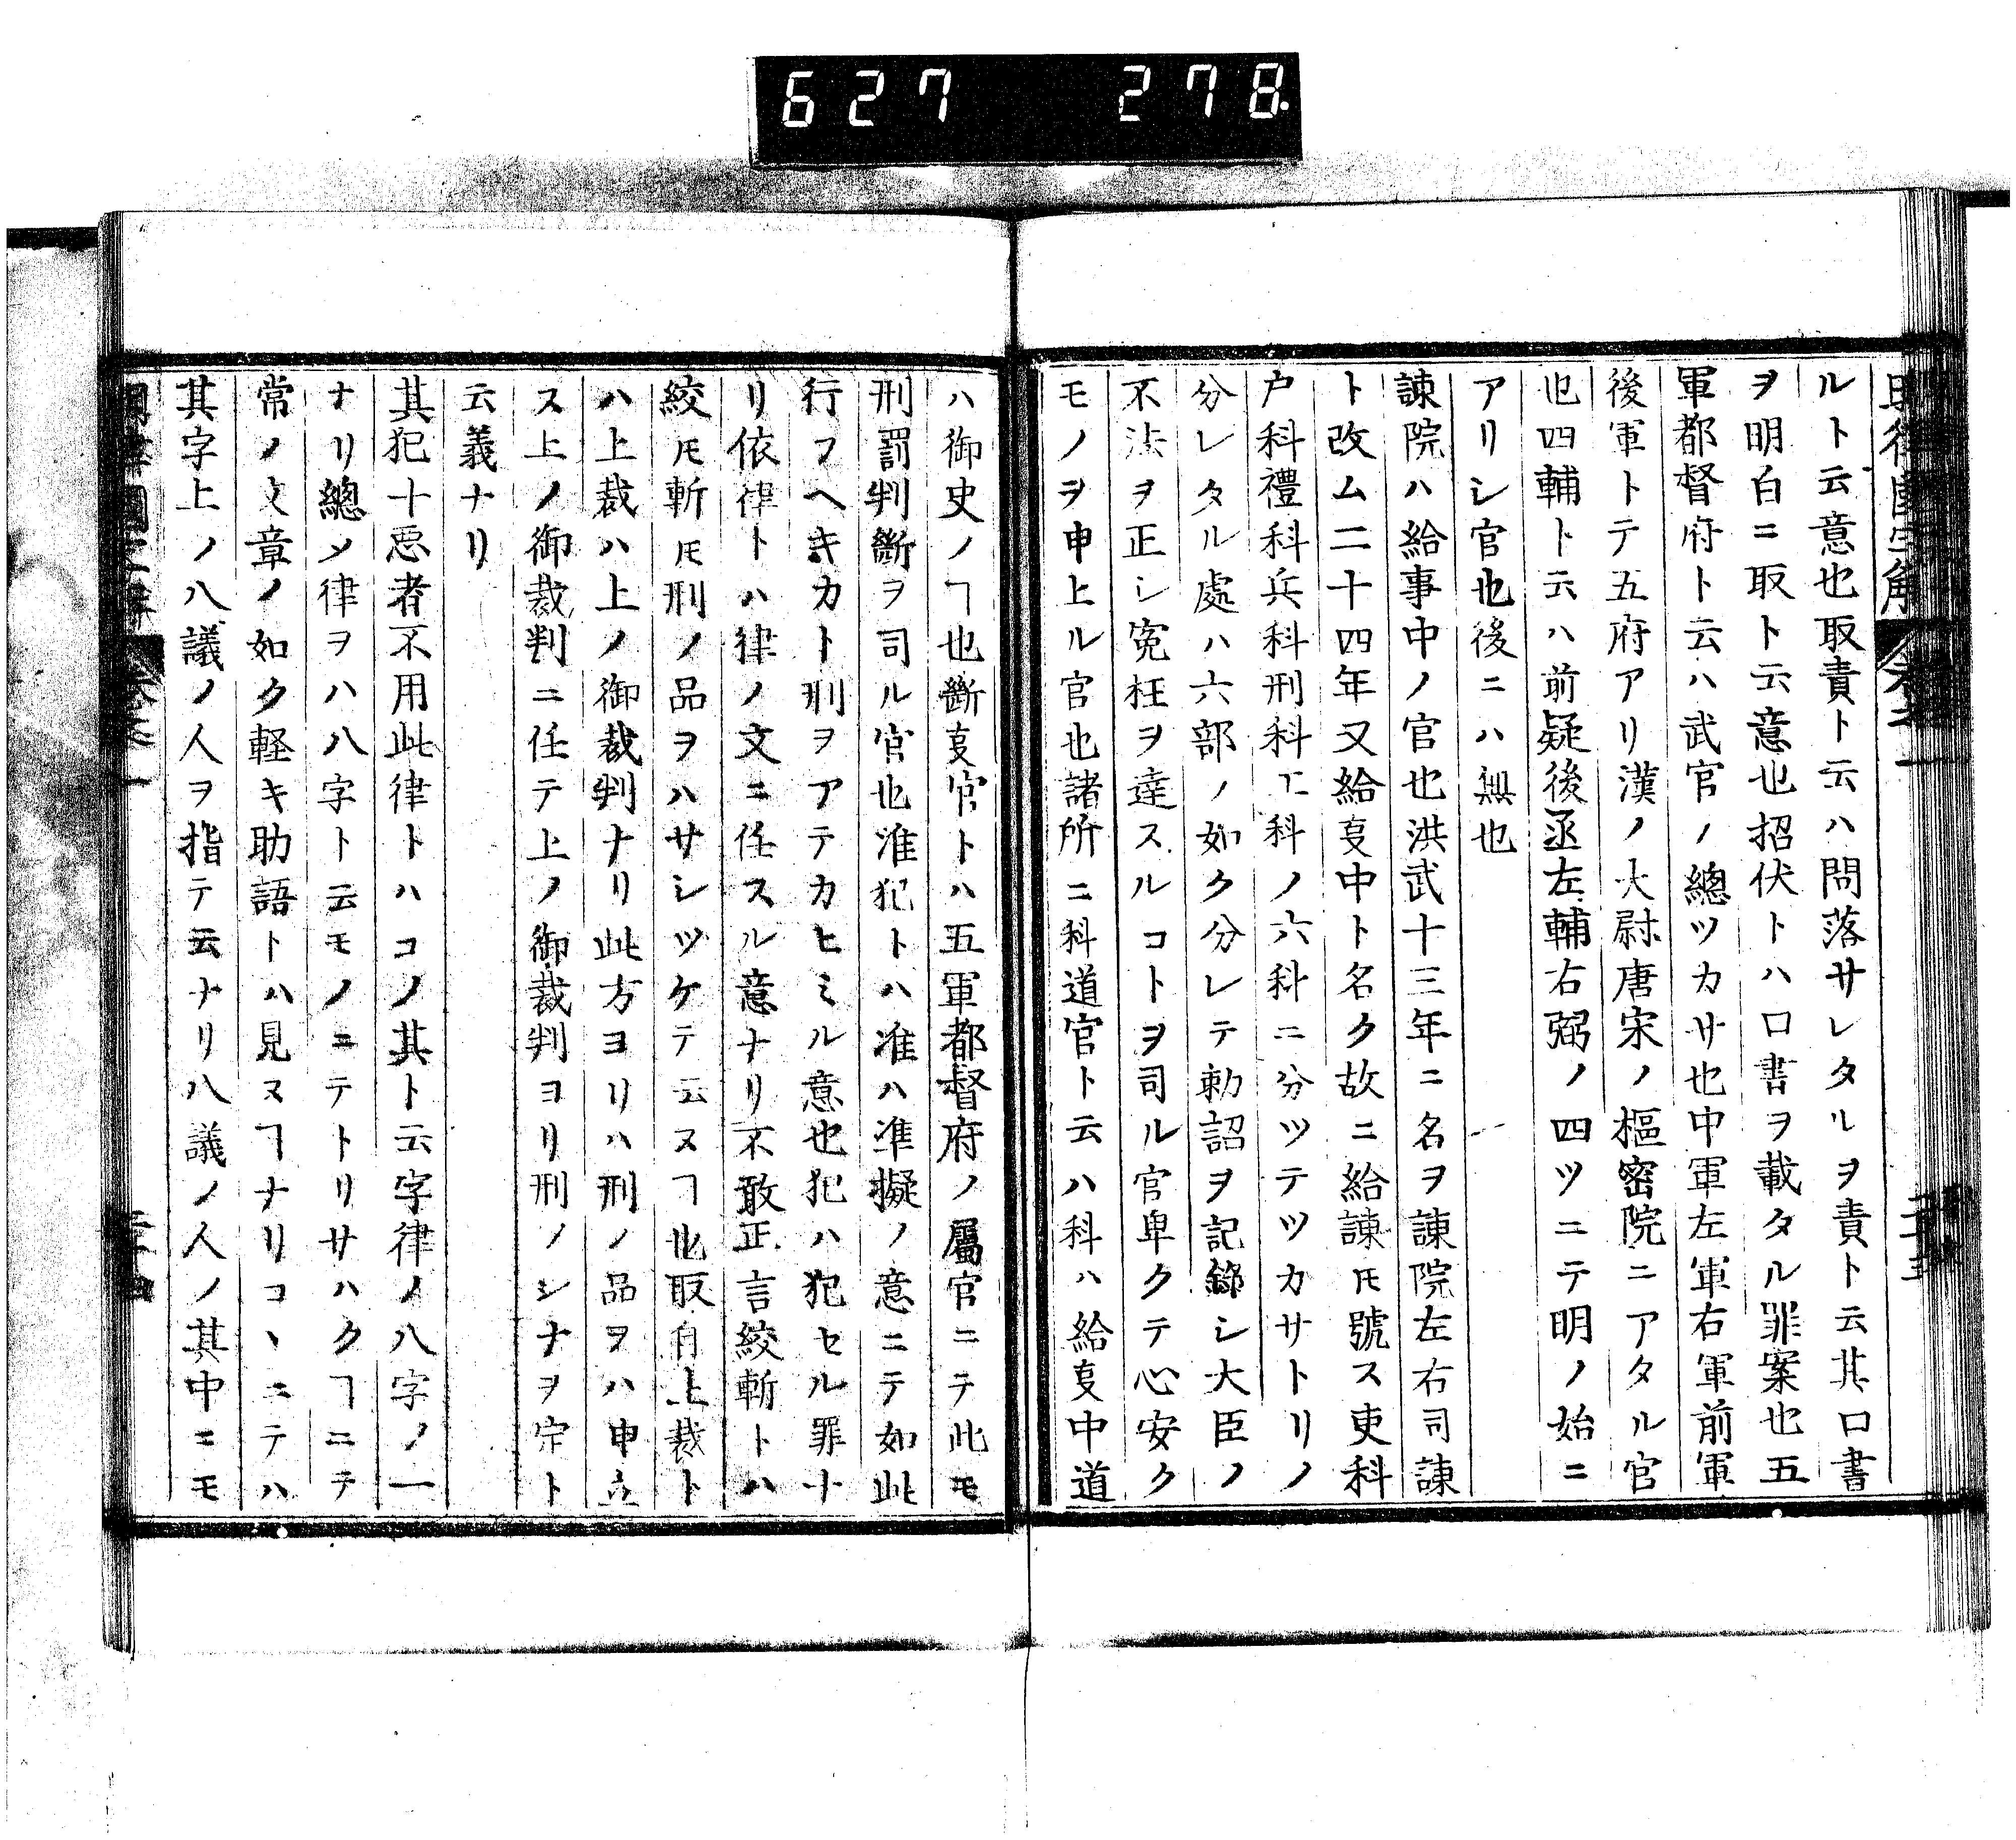 627 278
ルト云意也取責ト云ハ問落サレタルヲ責ト云其口書
ヲ明白ニ取ト云意也招伏トハ口書ヲ載タル罪案也五
軍都督府ト云ハ武官ノ總ツカサ也中軍左軍右軍前軍
後軍トテ五府アリ漢ノ大尉唐宋ノ樞密院ニアタル官
也四輔ト云ハ前疑後丞左輔右弼ノ四ツニテ明ノ始ニ
アリシ官也後ニハ無也
諫院ハ給事中ノ官也洪武十三年ニ名ヲ諫院左右司諫
ト改ム二十四年又給㕝中ト名ク故ニ給諫𪜈號ス吏科
户科禮科兵科刑科工科ノ六科ニ分ツテツカサトリノ
分レタル處ハ六部ノ如ク分レテ勅詔ヲ記錄シ大臣ノ
不法ヲ正シ寃枉ヲ達スルコトヲ司ル官卑クテ心安ク
モノヲ申上ル官也諸所ニ科道官ト云ハ科ハ給㕝中道
ハ御史ノヿ也斷㕝官トハ五軍都督府ノ屬官ニテ此モ
刑罰判斷ヲ司ル官也准犯トハ准ハ準擬ノ意ニテ如此
行フヘキカト刑ヲアテカヒミル意也犯ハ犯セル罪ナ
リ依律トハ律ノ文ニ任スル意ナリ不敢正言絞斬トハ
絞𪜈斬𪜈刑ノ品ヲハサシツケテ云ヌヿ也取自上裁ト
ハ上裁ハ上ノ御裁判ナリ此方ヨリハ刑ノ品ヲハ申立
ス上ノ御裁判ニ任テ上ノ御裁判ヨリ刑ノシナヲ定ト
云義ナリ
其犯十惡者不用此律トハコノ其ト云字律ノ八字ノ一
ナリ總メ律ヲハ八字ト云モノニテトリサハクヿニテ
常ノ文章ノ如ク軽キ助語トハ見ヌヿナリコヽニテハ
其字上ノ八議ノ人ヲ指テ云ナリ八議ノ人ノ其中ニモ